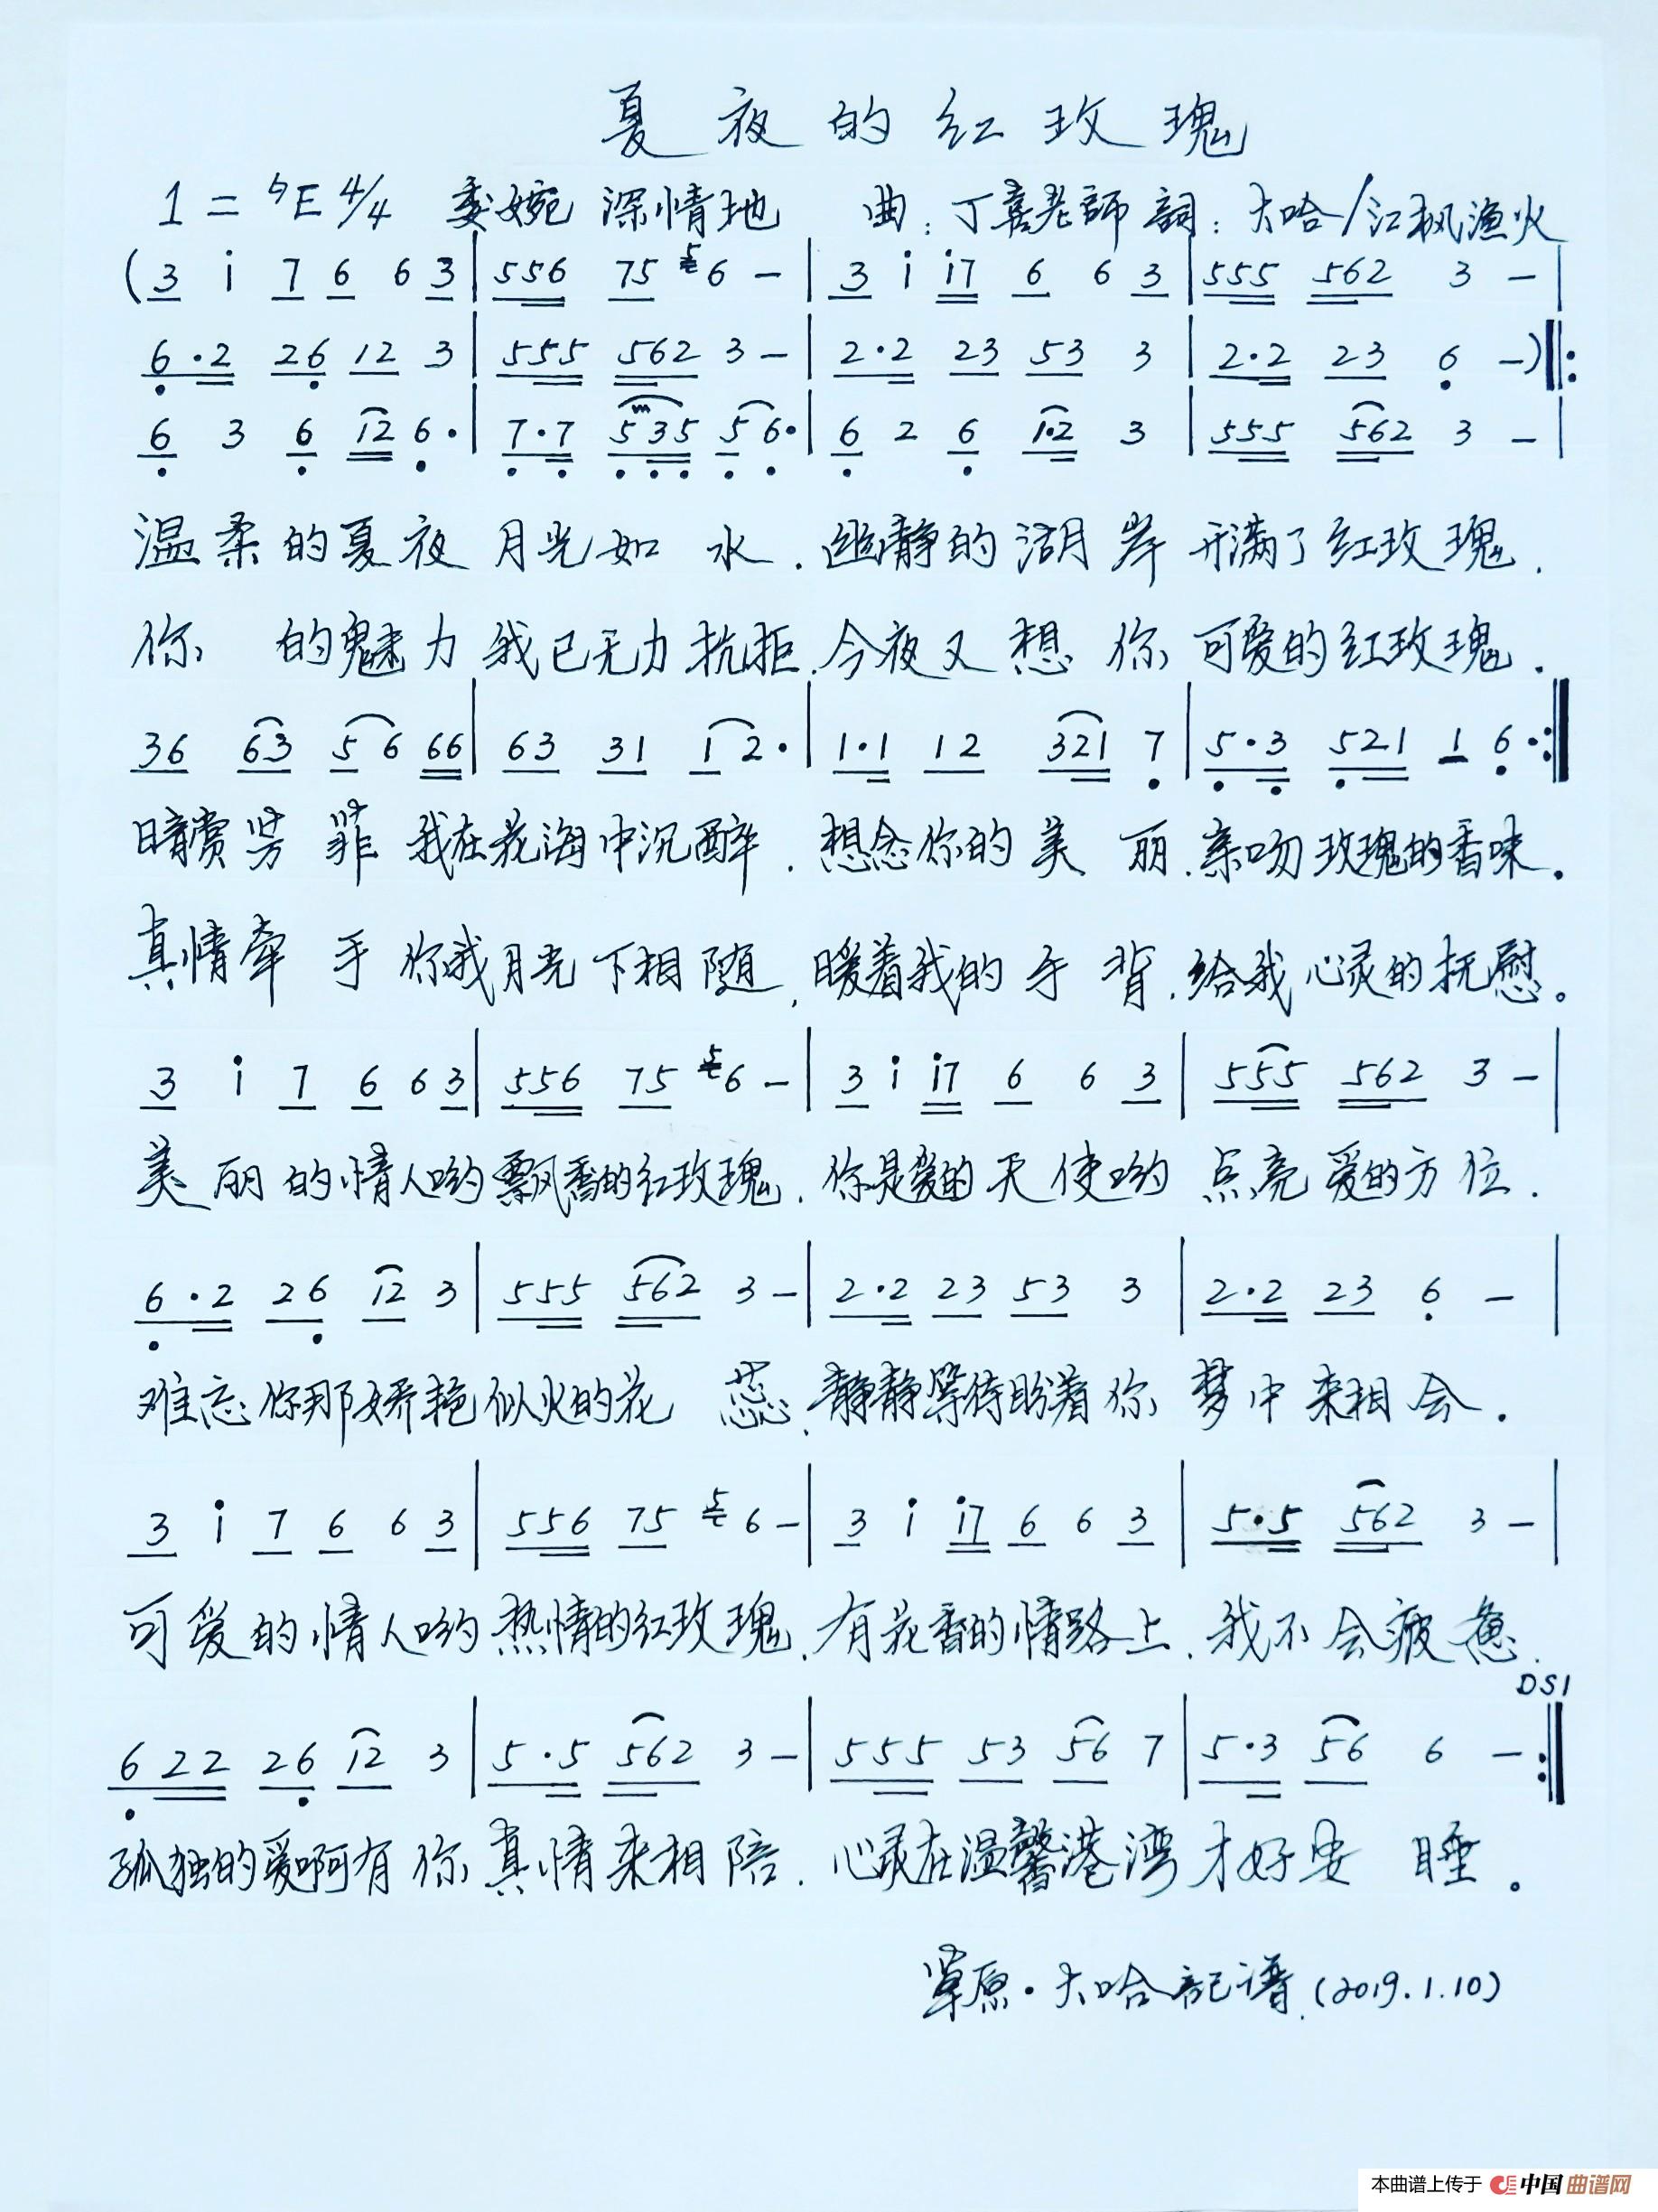 夏夜的红玫瑰
1=♮E 4/4 委婉 深情地 曲:丁喜老師 詞:大哈/江枫渔火
(3 i 7 6 6 3|556 75 5 6 -|3 i i7 6 6 3|555 562 3 -|
6·2 26 12 3|555 562 3 -|2·2 23 53 3|2·2 23 6 -)‖:
6 3 6 12 6·|7·7 535 5 6·|6 2 6 1·2 3|555 562 3 -|
温柔的夏夜 月光如 水.幽静的湖月岸 开满了红玫瑰.
你 的魅力 我已无力抗拒.今夜又想 你 可爱的红玫瑰.
36 63 5 6 66|63 31 1 2·|1·1 12 321 7|5·3 521 1 6·:‖
暗赏芳 菲 我在花海中沉醉.想念你的美 丽.亲吻玫瑰的香味.
真情牵 手 你我月光下相随,暖着我的手 背.给我心灵的抚慰。
3 i 7 6 6 3|556 75 5 6 -|3 i i7 6 6 3|555 562 3 -|
美丽的情人哟飘香的红玫瑰.你是爱的天使哟 点亮爱的方位.
6·2 26 12 3|555 562 3 -|2·2 23 53 3|2·2 23 6 -|
难忘你那娇艳似火的花 蕊.静静等待盼着你 梦中来相会.
3 i 7 6 6 3|556 75 5 6 -|3 i i7 6 6 3|5·5 562 3 -|
可爱的情人哟热情的红玫瑰.有花香的情路上.我不会疲惫.
DS1
622 26 12 3|5·5 562 3 -|555 53 56 7|5·3 56 6 -:‖
孤独的爱啊有你真情来相陪.心灵在温馨港湾才好安 睡。
草原·大哈記谱.(2019.1.10)
本曲谱上传于 中国曲谱网